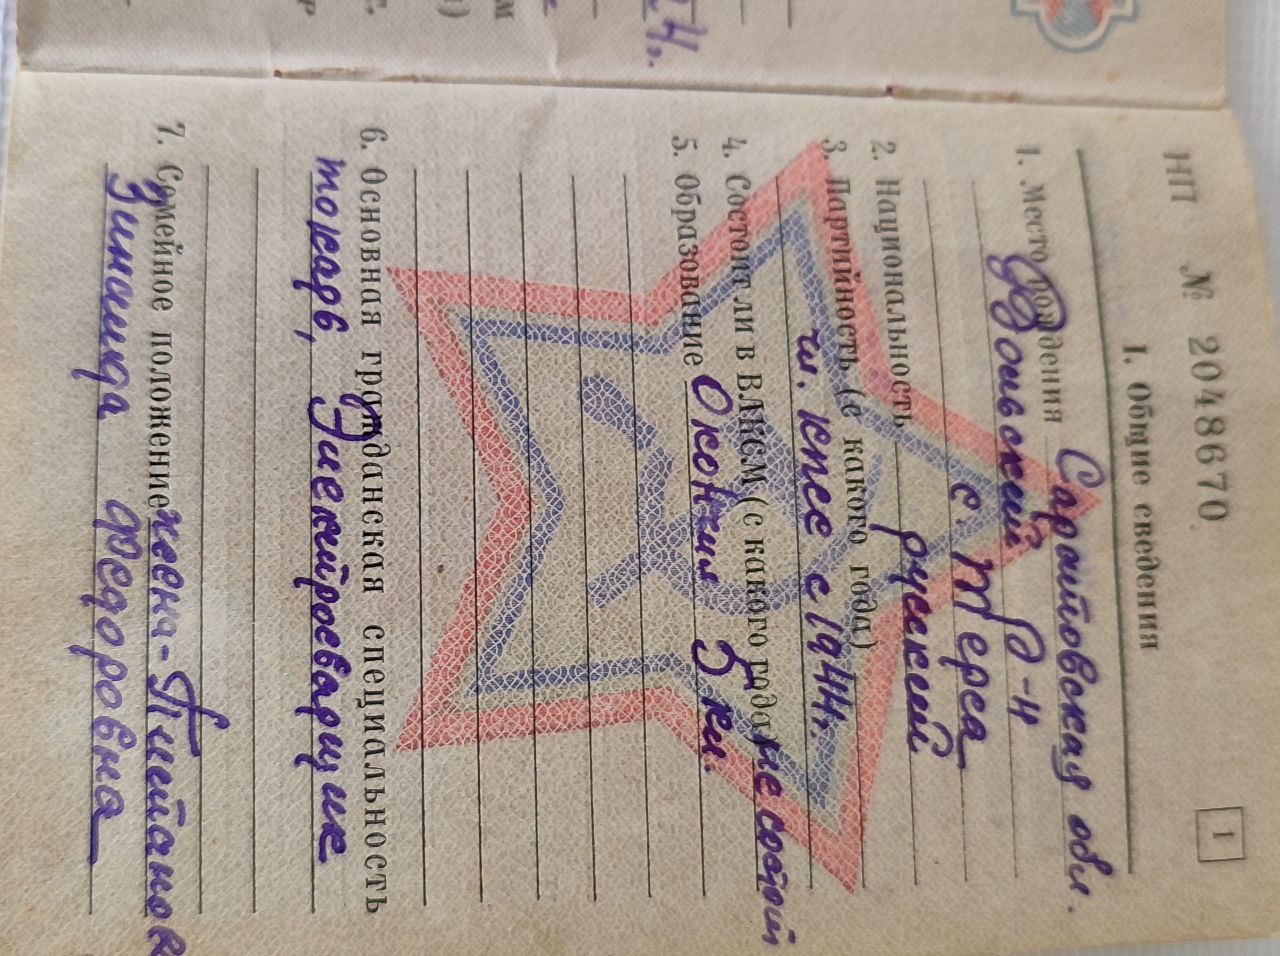 НП № 2048670
1
1. Общие сведения
1. Место рождения Саратовская обл.
Вольский р-н
с. Терса
2. Национальность русский
3. Партийность (с какого года)
чл. КПСС с 1944г.
4. Состоит ли в ВЛКСМ (с какого года) не состоит
5. Образование Окончил 5 кл.
6. Основная гражданская специальность
токарь, Электросварщик
7. Семейное положение жена - Титанов
Зинаида Федоровна